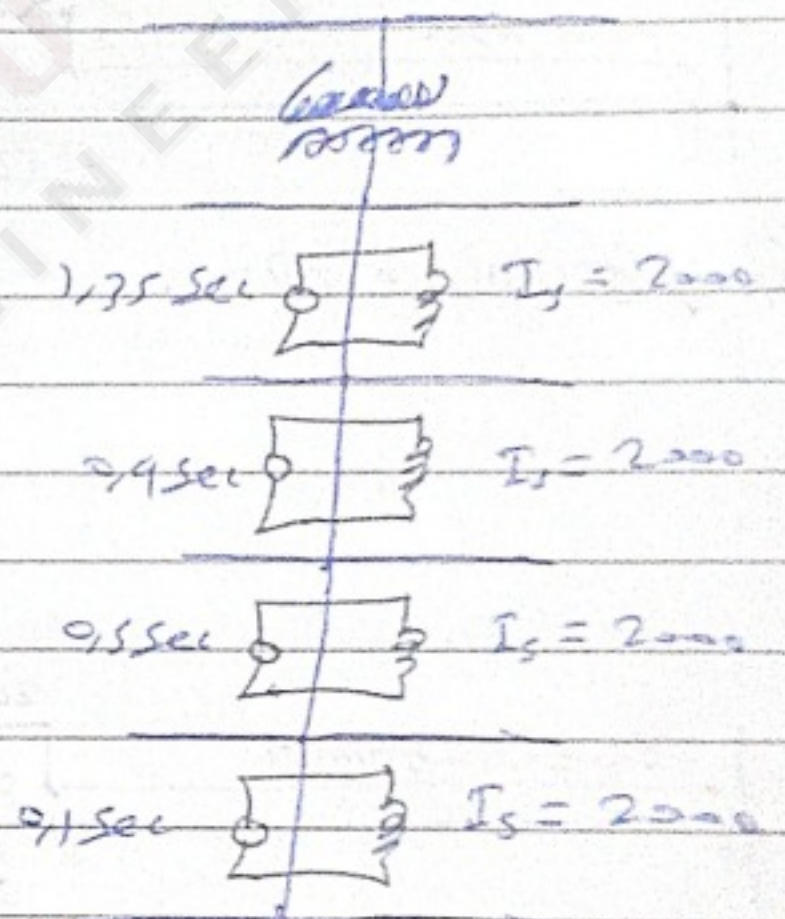 INEE
1,35 sec Is = 2000
0,9 sec Is = 2000
0,5 sec Is = 2000
0,1 sec Is = 2000